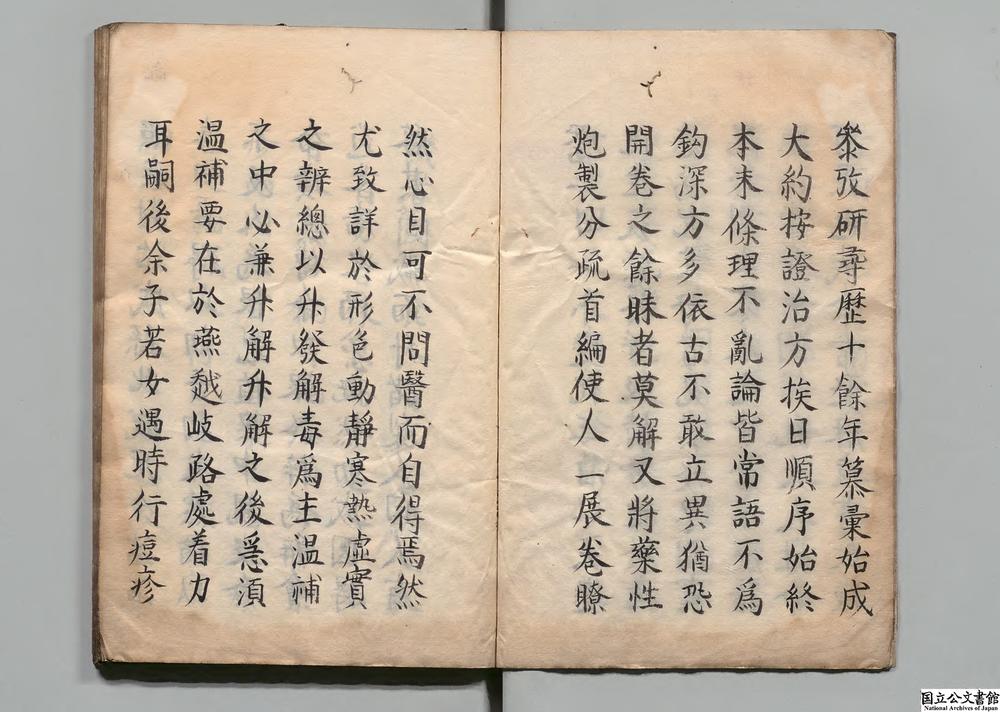 叅攷研尋歷十餘年纂彙始成
大約按證治方挨日順序始終
本末條理不亂論皆常語不爲
鈎深方多依古不敢立異猶恐
開卷之餘昧者莫解又將藥性
炮製分疏首編使人一展卷瞭
然心目可不問醫而自得焉然
尤致詳於形色動靜寒熱虛實
之辨總以升發解毒爲主溫補
之中必兼升解升解之後急須
溫補要在於燕越岐路處着力
耳嗣後余子若女遇時行痘疹
国立公文書館
National Archives of Japan